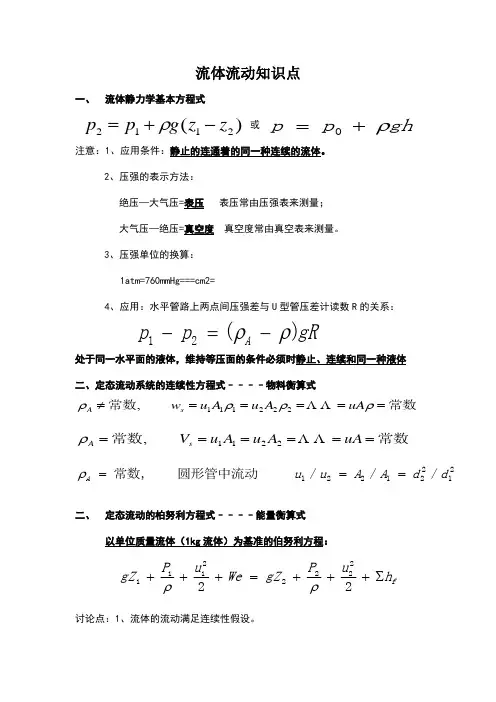 流体流动知识点
一、 流体静力学基本方程式
p₂ = p₁ + ρg(z₁ − z₂) 或 p = p₀ + ρgh
注意：1、应用条件：静止的连通着的同一种连续的流体。
2、压强的表示方法：
绝压—大气压=表压 表压常由压强表来测量；
大气压—绝压=真空度 真空度常由真空表来测量。
3、压强单位的换算：
1atm=760mmHg===cm2=
4、应用：水平管路上两点间压强差与U型管压差计读数R的关系：
p₁ − p₂ = (ρ_A − ρ)gR
处于同一水平面的液体，维持等压面的条件必须时静止、连续和同一种液体
二、定态流动系统的连续性方程式﹣﹣﹣﹣物料衡算式
ρ_A ≠ 常数, w_s = u₁A₁ρ₁ = u₂A₂ρ₂ = Λ Λ = uAρ = 常数
ρ_A = 常数, V_s = u₁A₁ = u₂A₂ = Λ Λ = uA = 常数
ρ_A = 常数, 圆形管中流动 u₁ / u₂ = A₂ / A₁ = d₂² / d₁²
二、 定态流动的柏努利方程式﹣﹣﹣﹣能量衡算式
以单位质量流体（1kg流体）为基准的伯努利方程：
gZ₁ + P₁/ρ + u₁²/2 + We = gZ₂ + P₂/ρ + u₂²/2 + Σh_f
讨论点：1、流体的流动满足连续性假设。